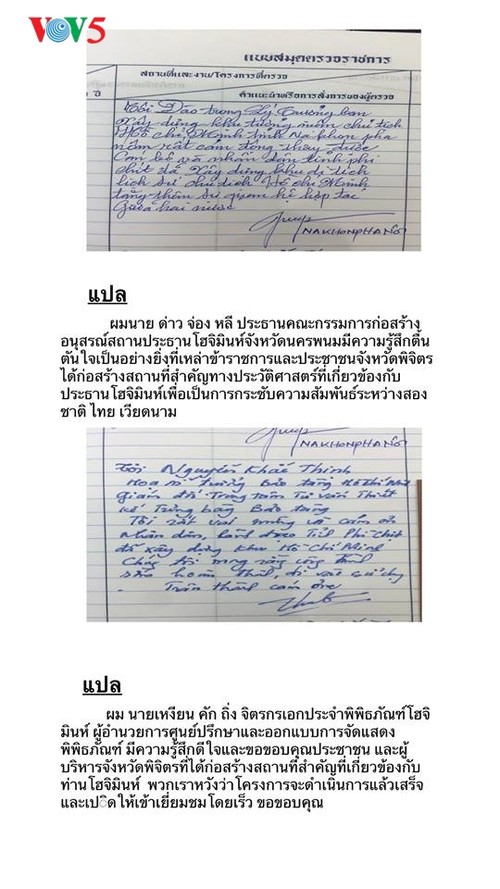 VOV5
แบบสมุดตรวจราชการ
สถานที่และงาน/โครงการที่ตรวจ
คำแนะนำหรือการสั่งการของผู้ตรวจ
Tôi Đào trọng Lý Trưởng ban
Xây dựng khu tưởng niệm chủ tịch
Hồ chí Minh tỉnh Na khon pha
nôm rất cảm động thấy được
Cán bộ và nhân dân tỉnh phi
chit đã xây dựng khu di tích
lịch sử chủ tịch Hồ chí Minh
tăng thêm sự quan hệ hợp tác
Giữa hai nước
NAKHONPHANOM
แปล
ผมนาย ด่าว จ่อง หลี ประธานคณะกรรมการก่อสร้าง
อนุสรณ์สถานประธานโฮจิมินห์จังหวัดนครพนมมีความรู้สึกตื้น
ตันใจเป็นอย่างยิ่งที่เหล่าข้าราชการและประชาชนจังหวัดพิจิตร
ได้ก่อสร้างสถานที่สำคัญทางประวัติศาสตร์ที่เกี่ยวข้องกับ
ประธานโฮจิมินห์เพื่อเป็นการกระชับความสัมพันธ์ระหว่างสอง
ชาติ ไทย เวียดนาม
NAKHONPHANOM
Tôi Nguyễn Khắc Thinh
Hoạ sĩ trưởng Bảo tàng Hồ Chí Minh
giám đốc Trung tâm Tư vấn Thiết
kế Trưng bày Bảo tàng
Tôi rất vui mừng và cảm ơn
nhân dân, lãnh đạo Tỉnh Phi Chit
đã xây dựng khu Hồ Chí Minh
Chúng tôi mong rằng công trình
sớm hoàn thành, đi vào sử dụng
Trân thành cảm ơn
แปล
ผม นายเหงียน คัก ถิ่ง จิตรกรเอกประจำพิพิธภัณฑ์โฮจิ
มินห์ ผู้อำนวยการศูนย์ปรึกษาและออกแบบการจัดแสดง
พิพิธภัณฑ์ มีความรู้สึกดีใจและขอขอบคุณประชาชน และผู้
บริหารจังหวัดพิจิตรที่ได้ก่อสร้างสถานที่สำคัญที่เกี่ยวข้องกับ
ท่านโฮจิมินห์ พวกเราหวังว่าโครงการจะดำเนินการแล้วเสร็จ
และเปิดให้เข้าเยี่ยมชมโดยเร็ว ขอขอบคุณ